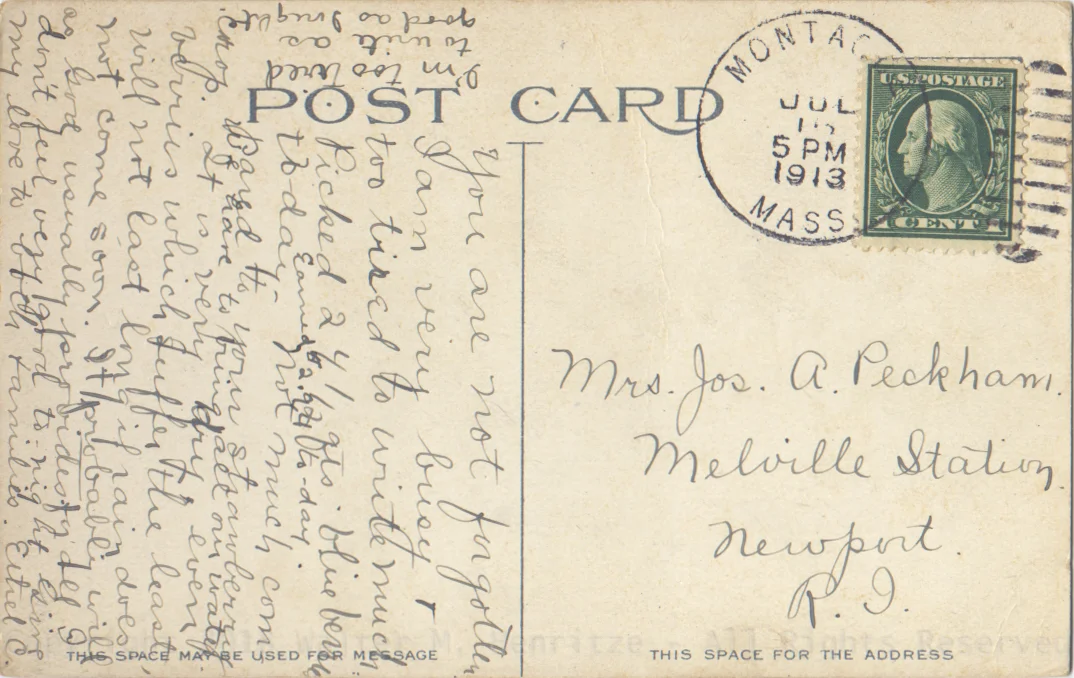 POST CARD
MONTAG
JUL
5 PM
1913
MASS
U.S. POSTAGE
1 CENT 1
You are not forgotten
I am very busy +
too tired to write much
Picked 24 1/2 qts. blueberries
to-day. Not much com-
Earned $2.94 to-day
pared to your strawberry
crop. We have to bring all our water
It is very dry even
wells which suffer the least
will not last long if rain does
not come soon. It probably will
as God usually provides
don't feel very good to night
my love to both families. Ethel
I'm too tired
to write as
good as I ought.
Mrs. Jos. A. Peckham.
Melville Station
Newport.
R. I.
THIS SPACE MAY BE USED FOR MESSAGE
THIS SPACE FOR THE ADDRESS
Walter M. Henritze - All Rights Reserved